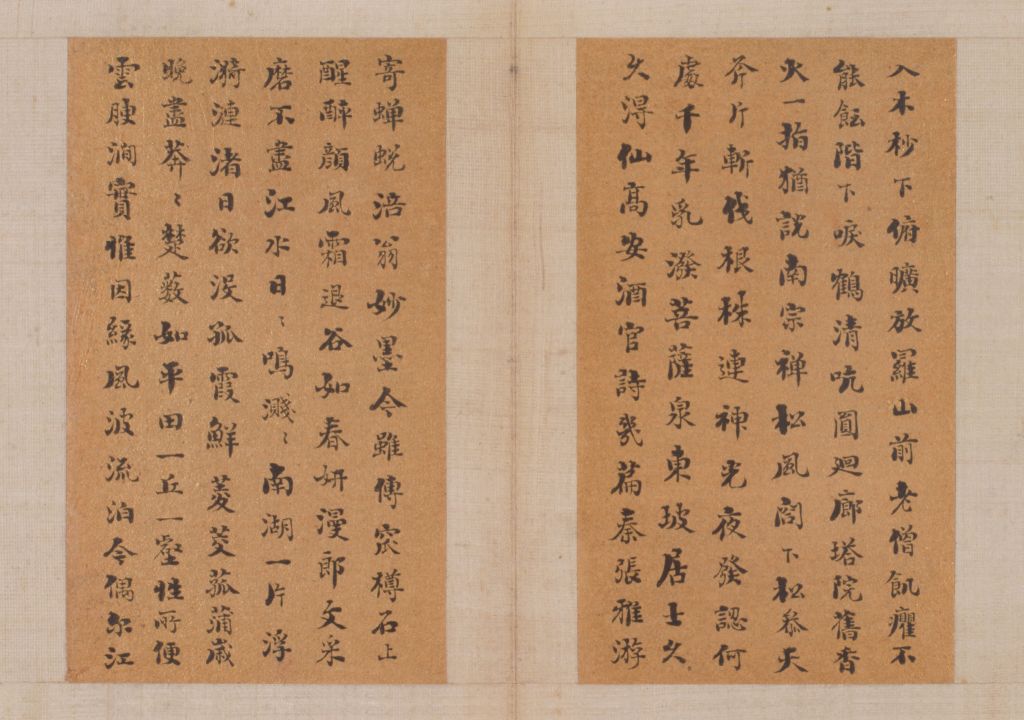 入木杪下俯曠放羅山前老僧飢癯不
能階下唳鶴清吭圓廻廊塔院舊香
火一指猶說南宗禅松風閣下松參天
斧斤斬伐根株連神光夜發認何
處千年乳潑菩薩泉東坡居士久
久得仙高安酒官詩幾篇秦張雅游
寄蟬蛻涪翁妙墨今雖傳窊樽石上
醒醉顏風霜退谷如春妍漫郎文采
磨不盡江水日〻鳴濺〻南湖一片浮
漪漣渚日欲沒孤霞鮮菱芰菰蒲歲
晚盡莽〻楚薮如平田一丘一壑性所便
雲腴澗實惟因緣風波流泊今偶尔江